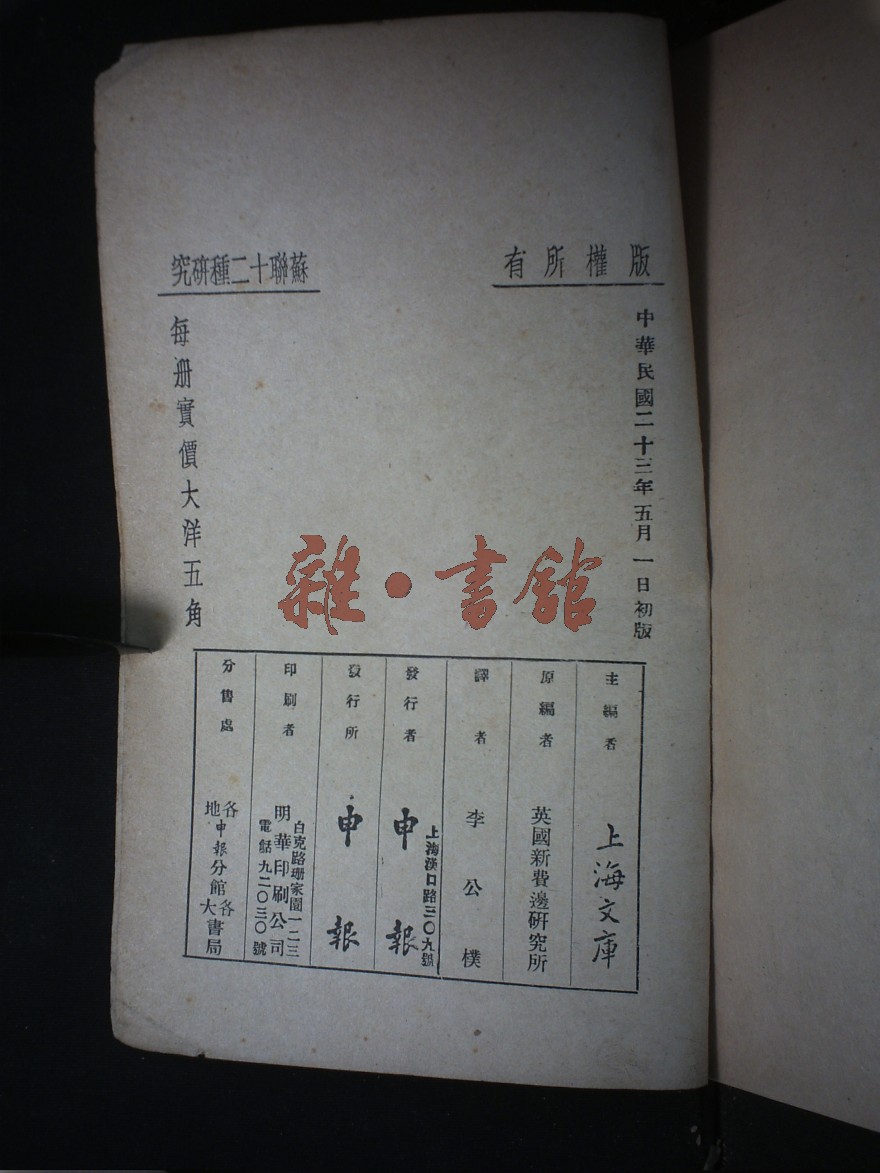 版權所有
中華民國二十三年五月一日初版
主編者 上海文庫
原編者 英國新費邊研究所
譯者 李公樸
發行者 申報
上海漢口路三〇九號
發行所 申報
印刷者
白克路珊家園一二三
明華印刷公司
電話九二〇三〇號
分售處
各地申報分館
各大書局
蘇聯十二種研究
每册實價大洋五角
雜·書館